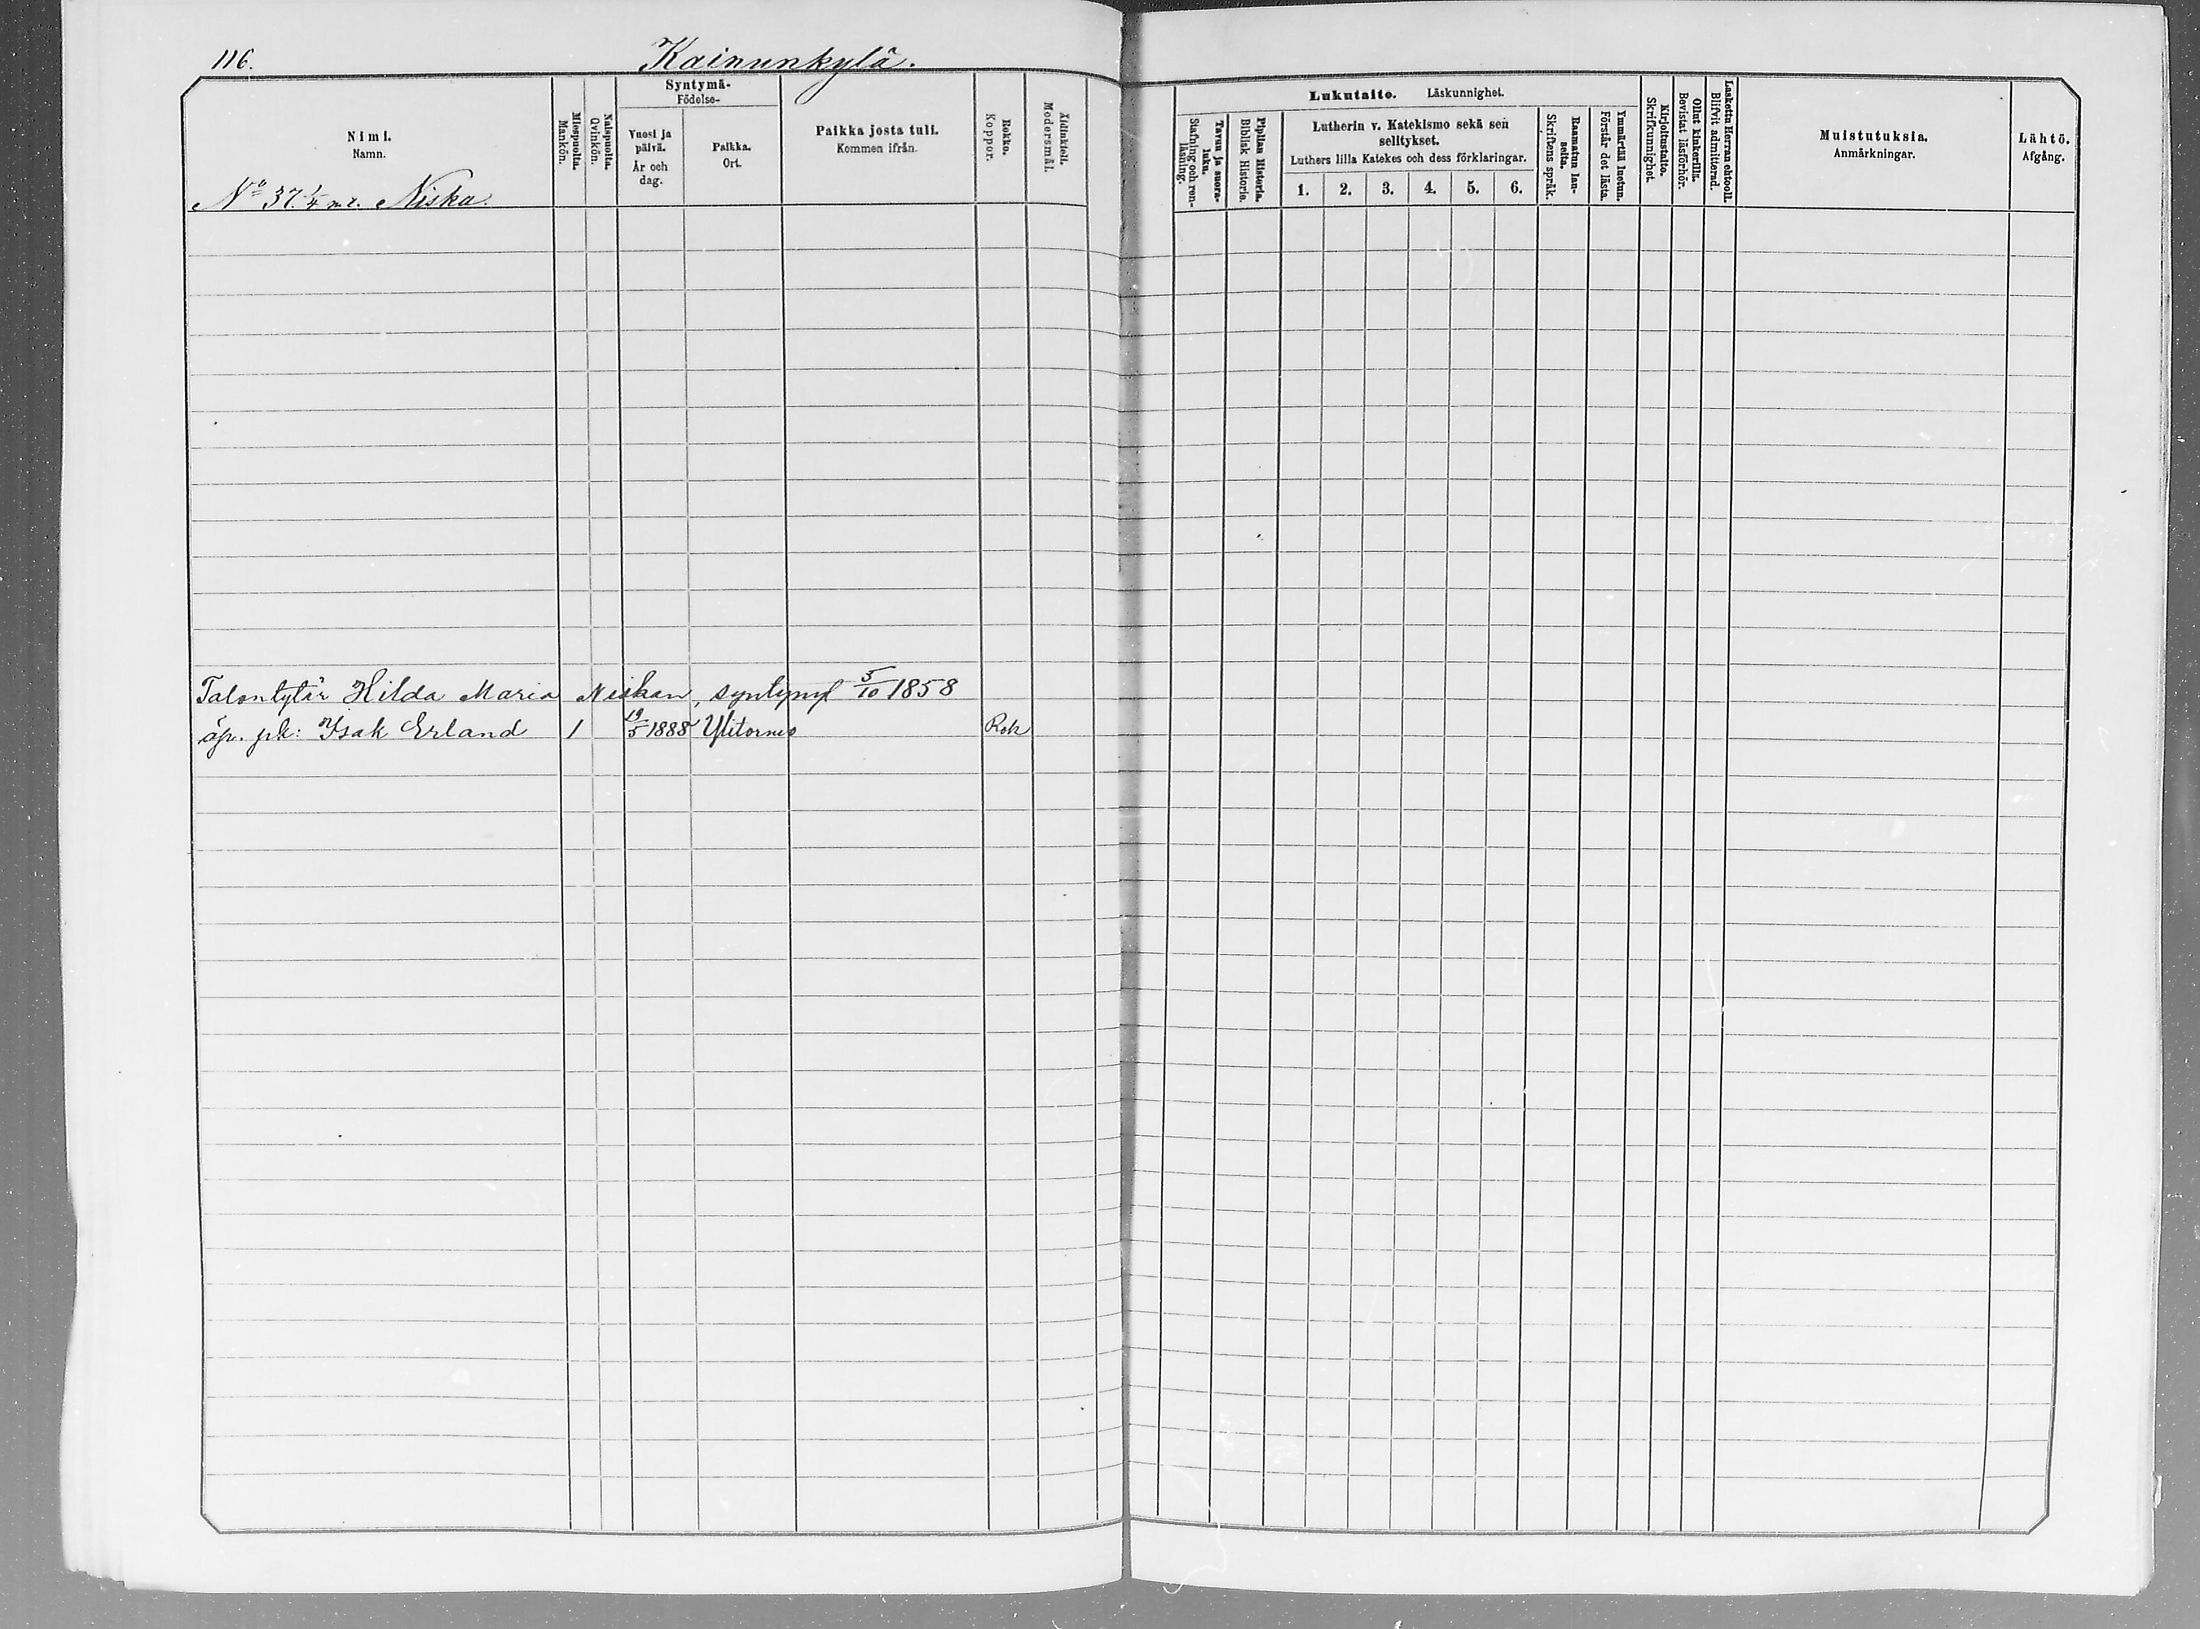 116.
Kainunkylä.
Nimi.
Namn.
Miespuolta.
Mankön.
Naispuolta.
Qvinkön.
Syntymä-
Födelse-
Vuosi ja
päivä.
År och
dag.
Paikka.
Ort.
Paikka josta tuli.
Kommen ifrån.
Rokko.
Koppor.
Äidinkieli.
Modersmål.
Lukutaito. Läskunnighet.
Tavuu ja suora-
luku.
Stafning och ren-
läsning.
Piplian Historia.
Biblisk Historie.
Lutherin v. Katekismo sekä sen
selitykset.
Luthers lilla Katekes och dess förklaringar.
1. 2. 3. 4. 5. 6.
Raamatun lau-
seita.
Skriftens språk.
Ymmärtää luetun.
Förstår det lästa.
Kirjoitustaito.
Skrifkunnighet.
Ollut kinkerillä.
Bevistat läsförhör.
Laskettu Herran ehtooll.
Blifvit admitterad.
Muistutuksia.
Anmärkningar.
Lähtö.
Afgång.
No 37. 1/4 mr. Niska.
Talontytär Hilda Maria Niskan, syntynyt 5/10 1858
äp. plk: Isak Erland 1 19/5 1888 Ylitornio Rok